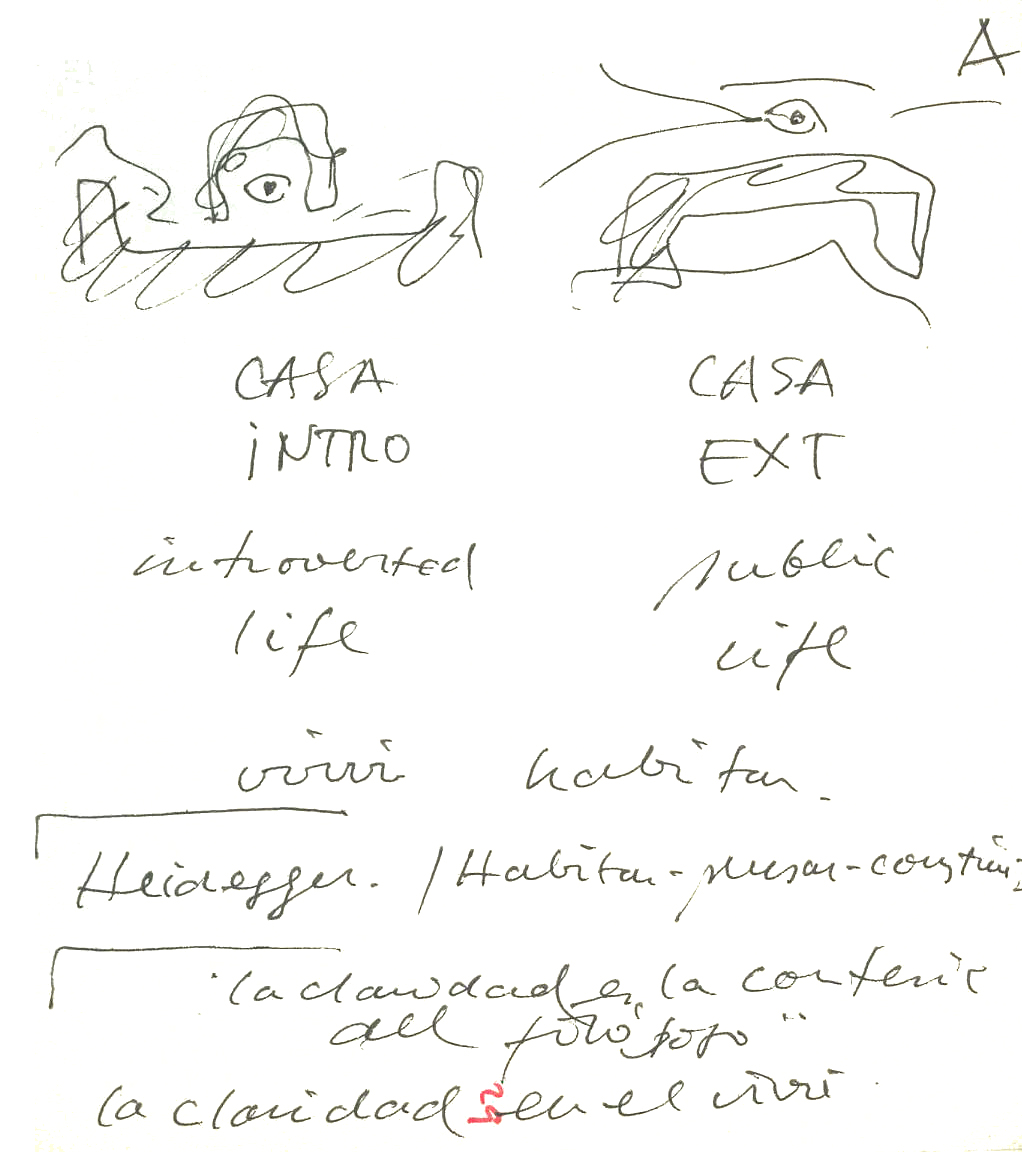 A
CASA CASA
INTRO EXT
introverted public
life life
vivir habitar.
Heidegger. / Habitar-pensar-construir
"la claridad es la cortesía
del filósofo"
la claridad en el vivir